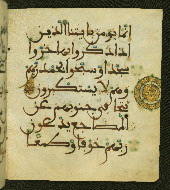 انما يومن بايتنا الذين
اذا ذكروا بها خروا
سجدا وسبحوا بحمد ربهم
وهم لا يستكبرون
تتجافى جنوبهم عن
المضاجع يدعون
ربهم خوفا وطمعا